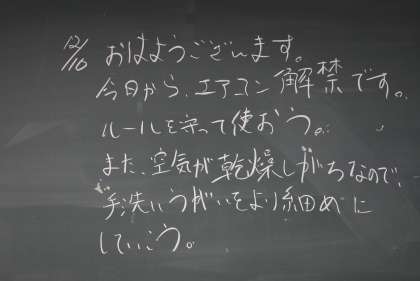 12/10 おはようございます。
今日から、エアコン解禁です。
ルールを守って使おう。
また、空気が乾燥しがちなので、
手洗いうがいをより細めに
していこう。